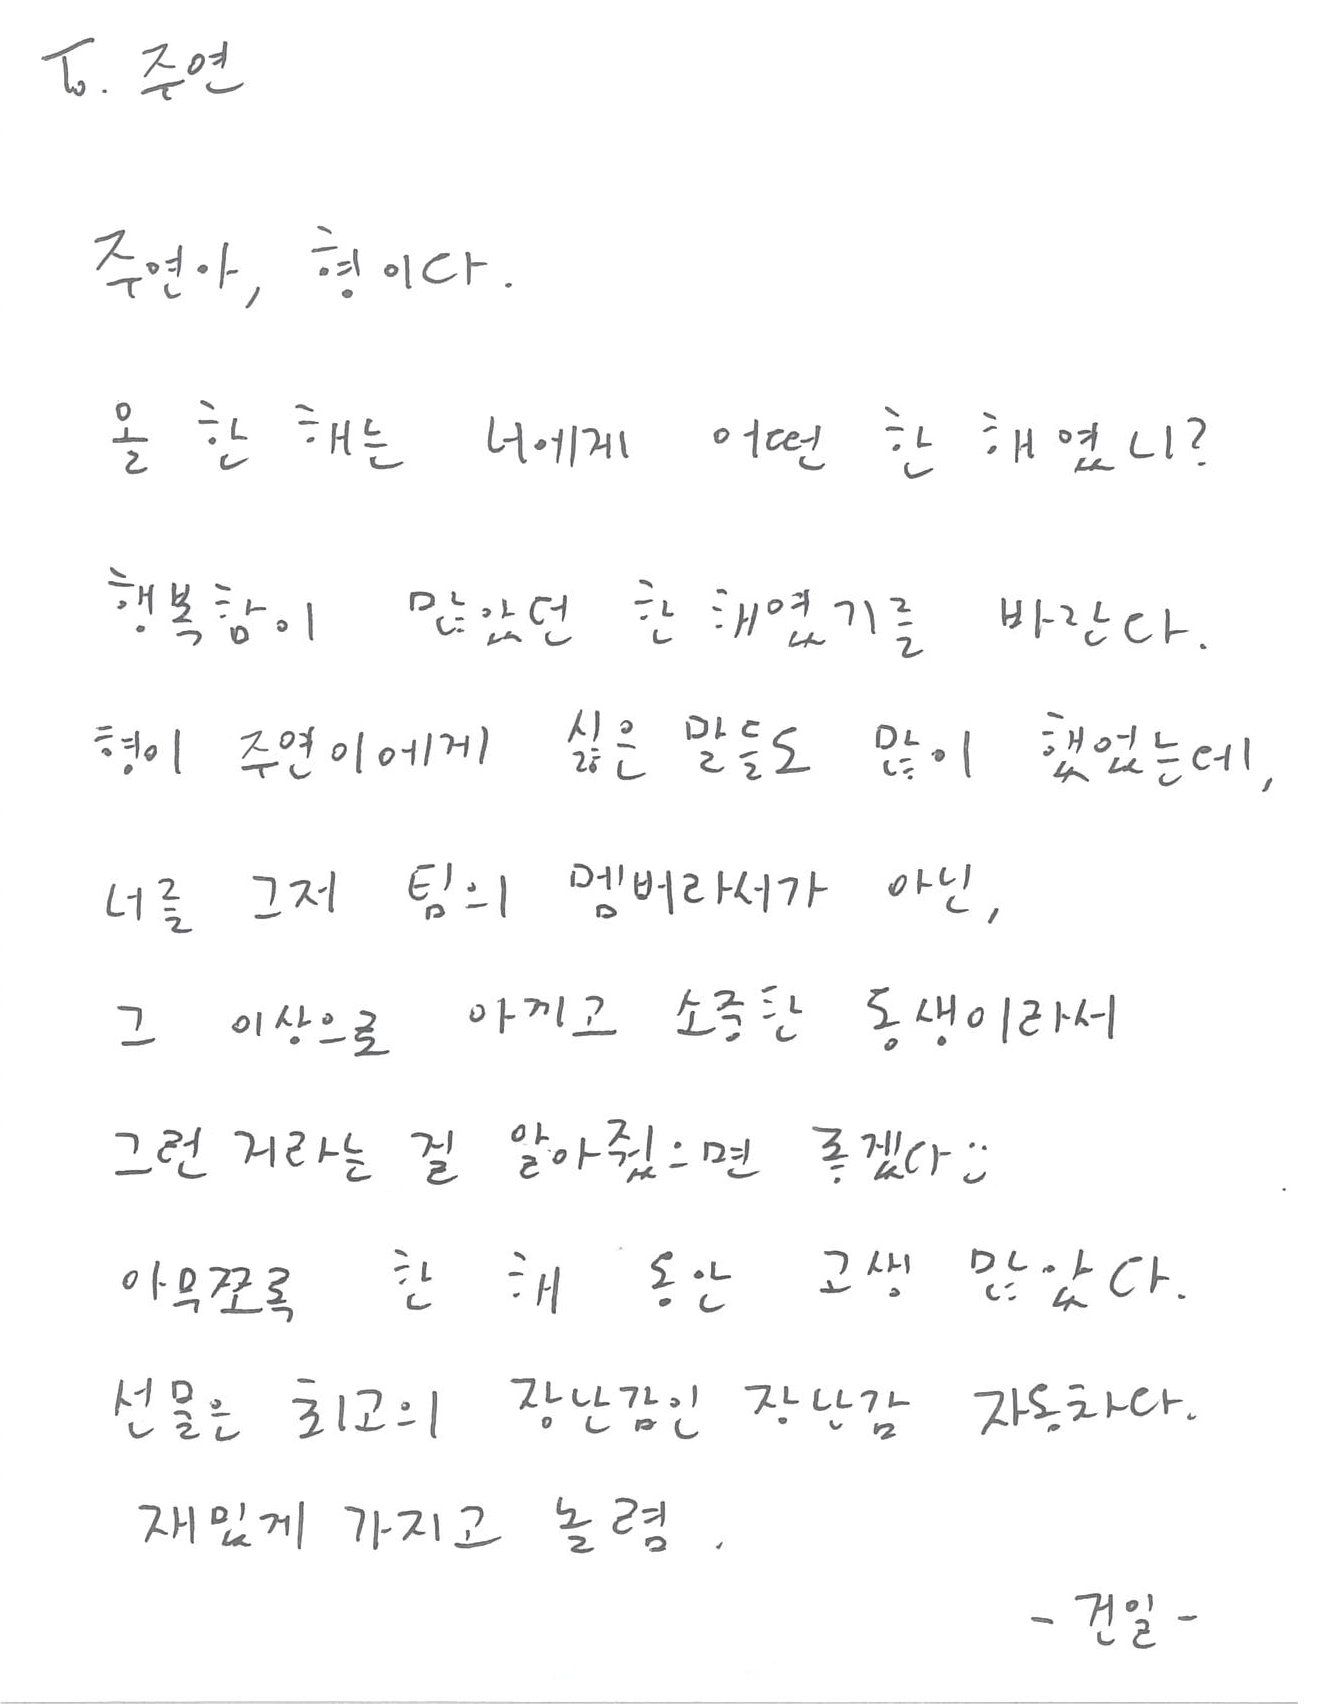 To. 주연
주연아, 형이다.
올 한 해는 너에게 어떤 한 해였니?
행복함이 많았던 한 해였기를 바란다.
형이 주연이에게 싫은 말들도 많이 했었는데,
너를 그저 팀의 멤버라서가 아닌,
그 이상으로 아끼고 소중한 동생이라서
그런 거라는 걸 알아줬으면 좋겠다
아무쪼록 한 해 동안 고생 많았다.
선물은 최고의 장난감인 장난감 자동차다.
재밌게 가지고 놀렴.
- 건일 -